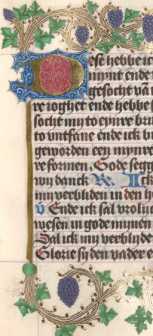 Dese hebbe ic
mynt ende
gesocht va
re ioghet ende hebbe
socht my to eynre bru
to untfane ende ick
geworden een mynre
re formen. Gode segg
wy danck Ick
my verbliden in den h
v Ende ick sal vrolic
wesen in gode mijnen
Sal ick my verblyde
Glorie sy den vader e